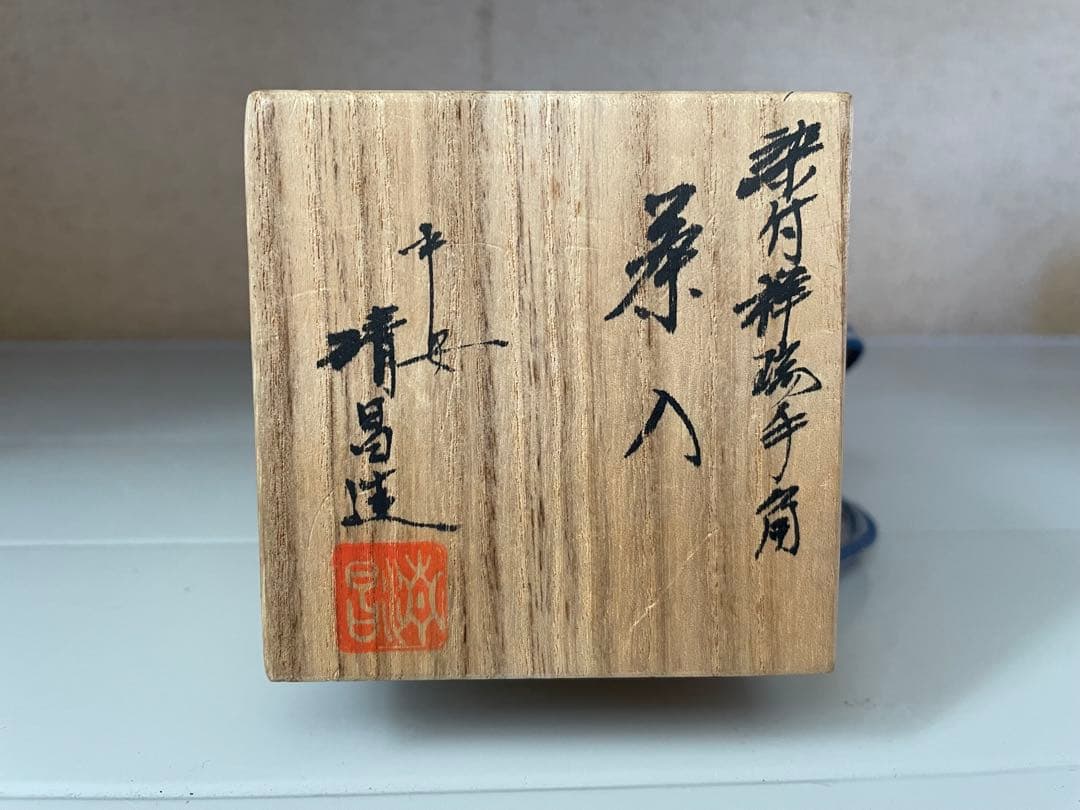 染付祥瑞手角
茶入
平安
晴昌造